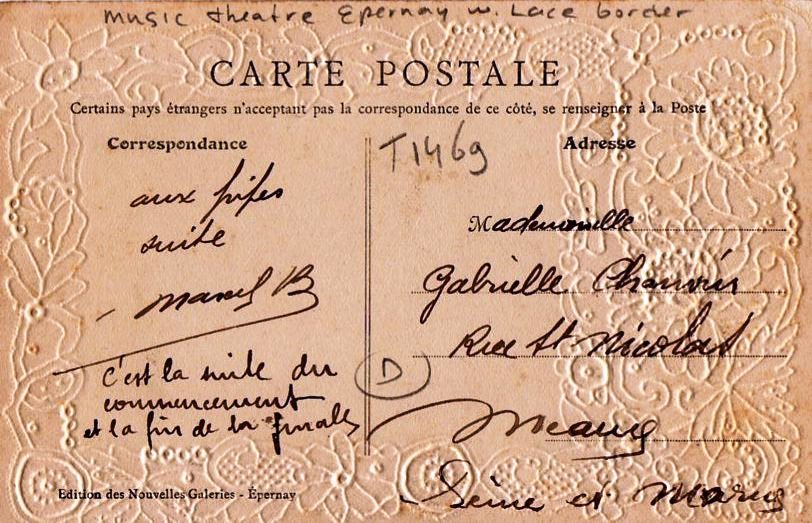 music theatre Epernay w. Lace border
CARTE POSTALE
Certains pays étrangers n'acceptant pas la correspondance de ce côté, se renseigner à la Poste
Correspondance
aux
suite
Marcel B
c'est la suite du
commencement
et la fin de la finale
Edition des Nouvelles Galeries - Épernay
T1469
D
Adresse
Mademoiselle
Gabrielle
Rue St Nicolas
Meaux
Seine et Marne